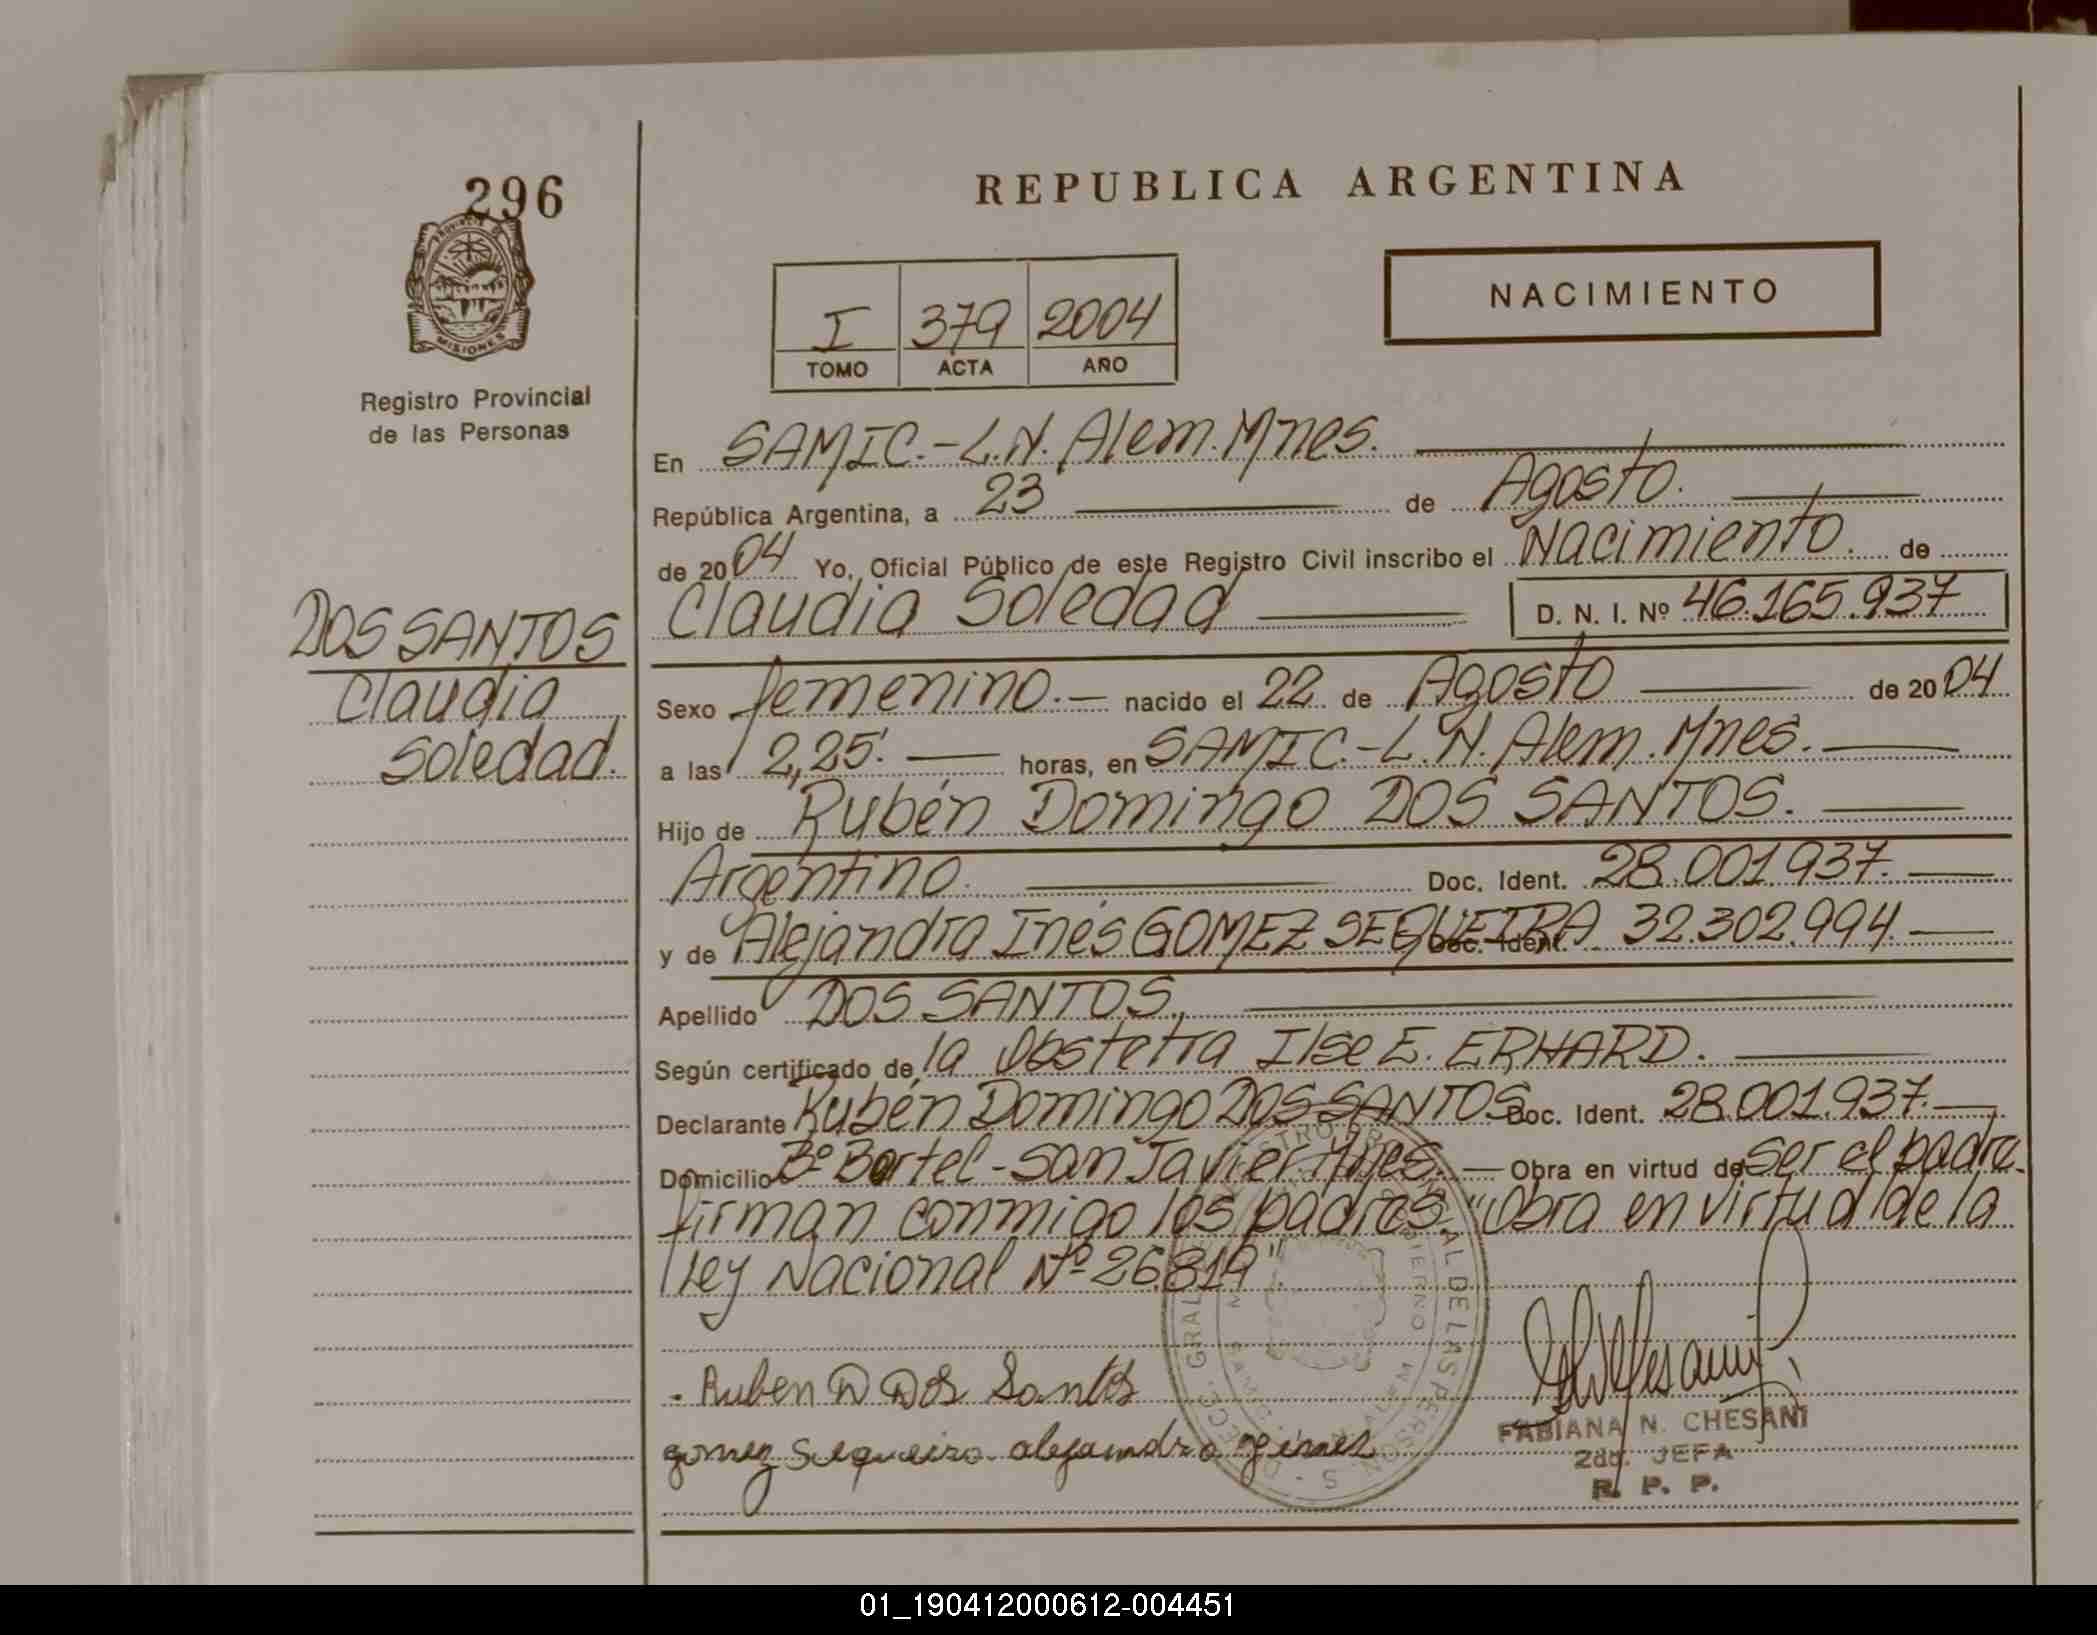 296
PROVINCIA DE
MISIONES
Registro Provincial
de las Personas
REPUBLICA ARGENTINA
NACIMIENTO
I 379 2004
TOMO ACTA AÑO
En SAMIC.-L.N. Alem. Mnes.
República Argentina, a 23 de Agosto.
de 2004 Yo, Oficial Público de este Registro Civil inscribo el Nacimiento. de
Claudia Soledad D. N. I. Nº 46.165.937
DOS SANTOS
Claudia
Soledad.
Sexo femenino.- nacido el 22 de Agosto de 2004
a las 12,25'. horas, en SAMIC.-L.N. Alem. Mnes.
Hijo de Rubén Domingo DOS SANTOS.
Argentino. Doc. Ident. 28.001.937.
y de Alejandra Inés GOMEZ SEQUEIRA Doc. Ident. 32.302.994.
Apellido DOS SANTOS.
Según certificado de la Obstetra Ilse E. ERHARD.
Declarante Rubén Domingo DOS SANTOS Doc. Ident. 28.001.937.
Domicilio Bº Bartel - San Javier Mnes. Obra en virtud de ser el padre.
firman conmigo los padres. "Obra en virtud de la
Ley Nacional Nº 26.819".
Ruben D Dos Santos
gomez Sequeira alejandra
FABIANA N. CHESANI
2da. JEFA
R. P. P.
01_190412000612-004451